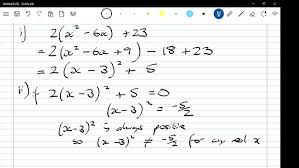 i) 2(x² - 6x) + 23
= 2(x² - 6x + 9) - 18 + 23
= 2(x - 3)² + 5
ii) 2(x - 3)² + 5 = 0
(x - 3)² = -5/2
(x - 3)² is always positive
so (x - 3)² ≠ -5/2 for any real x